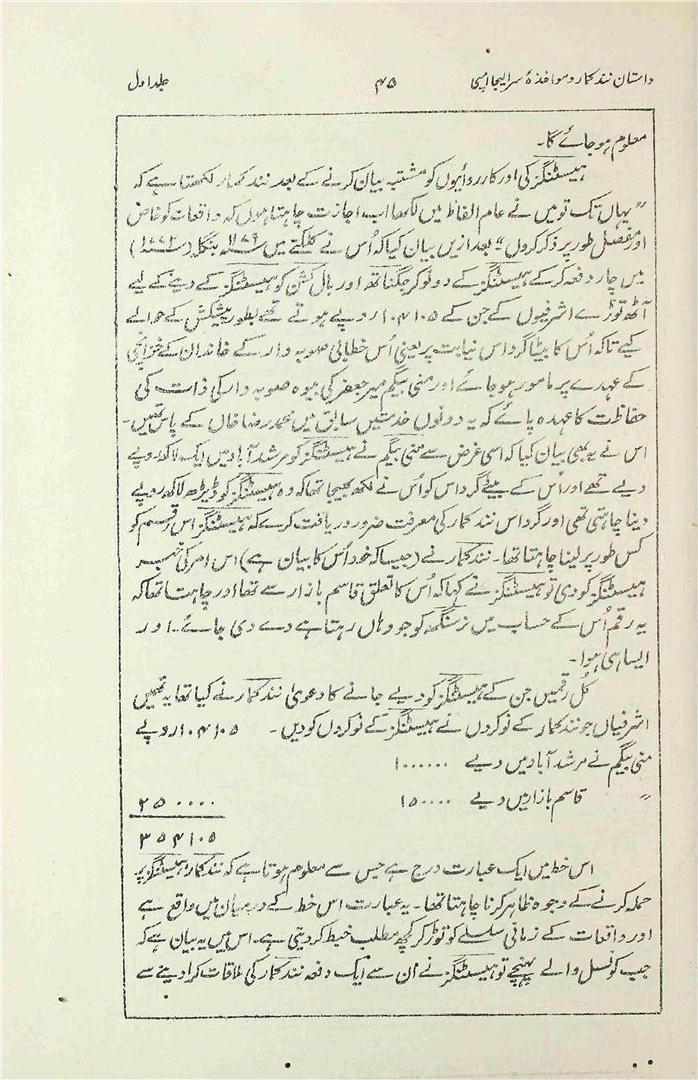 داستان نند کمار و مواخذۂ سر ایلیجا امپی ۴۵ جلد اول
معلوم ہو جائے گا۔
ہیسٹنگز کی اور کارروائیوں کو مشتبہ بیان کرنے کے بعد نند کمار لکھتا ہے کہ
"یہاں تک تو میں نے عام الفاظ میں لکھا اب اجازت چاہتا ہوں کہ واقعات کو خاص
اور مفصل طور پر ذکر کروں" بعد ازیں بیان کیا کہ اُس نے کلکتے میں ۱۱۷۹ بنگلہ (۱۷۷۲)
میں چار دفعہ کر کے ہیسٹنگز کے دو نوکر جگناتھ اور بال کشن کو ہیسٹنگز کے دینے کے لیے
آٹھ توڑے اشرفیوں کے جن کے ۱۰۴۱۰۵ روپے ہوتے تھے بطور پیشکش کے حوالے
کیے تاکہ اُس کا بیٹا گرداس نیابت پر یعنی اُس خطابی صوبہ دار کے خاندان کے خزانچی
کے عہدے پر مامور ہو جائے اور منی بیگم میر جعفر کی بیوہ صوبہ دار کی ذات کی
حفاظت کا عہدہ پائے کہ یہ دونوں خدمتیں سابق میں محمد رضا خاں کے پاس تھیں۔
اس نے یہ بھی بیان کیا کہ اسی غرض سے منی بیگم نے ہیسٹنگز کو مرشد آباد میں ایک لاکھ روپے
دیے تھے اور اُس کے بیٹے گرداس کو اُس نے لکھ بھیجا تھا کہ وہ ہیسٹنگز کو ڈیڑھ لاکھ روپے
دینا چاہتی تھی اور گرداس نند کمار کی معرفت ضرور دریافت کرے کہ ہیسٹنگز اس رقم کو
کس طور پر لینا چاہتا تھا۔ نند کمار نے (جیسا کہ خود اُس کا بیان ہے) اس امر کی خبر
ہیسٹنگز کو دی تو ہیسٹنگز نے کہا کہ اُس کا تعلق قاسم بازار سے تھا اور چاہتا تھا کہ
یہ رقم اُس کے حساب میں نرسنگھ کو جو وہاں رہتا ہے دے دی جائے۔ اور
ایسا ہی ہوا۔
کُل رقمیں جن کے ہیسٹنگز کو دیے جانے کا دعویٰ نند کمار نے کیا تھا یہ تھیں
اشرفیاں جو نند کمار کے نوکروں نے ہیسٹنگز کے نوکروں کو دیں۔ ۱۰۴۱۰۵ روپے
منی بیگم نے مرشد آباد میں دیے ۱۰۰۰۰۰
" قاسم بازار میں دیے ۱۵۰۰۰۰ ۲۵۰۰۰۰
۳۵۴۱۰۵
اس خط میں ایک عبارت درج ہے جس سے معلوم ہوتا ہے کہ نند کمار ہیسٹنگز پر
حملہ کرنے کے وجوہ ظاہر کرنا چاہتا تھا۔ یہ عبارت اس خط کے درمیان میں واقع ہے
اور واقعات کے زمانی سلسلے کو توڑ کر کچھ مطلب خبط کر دیتی ہے۔ اس میں یہ بیان ہے کہ
جب کونسل والے پہنچے تو ہیسٹنگز نے ان سے ایک دفعہ نند کمار کی ملاقات کرا دینے سے